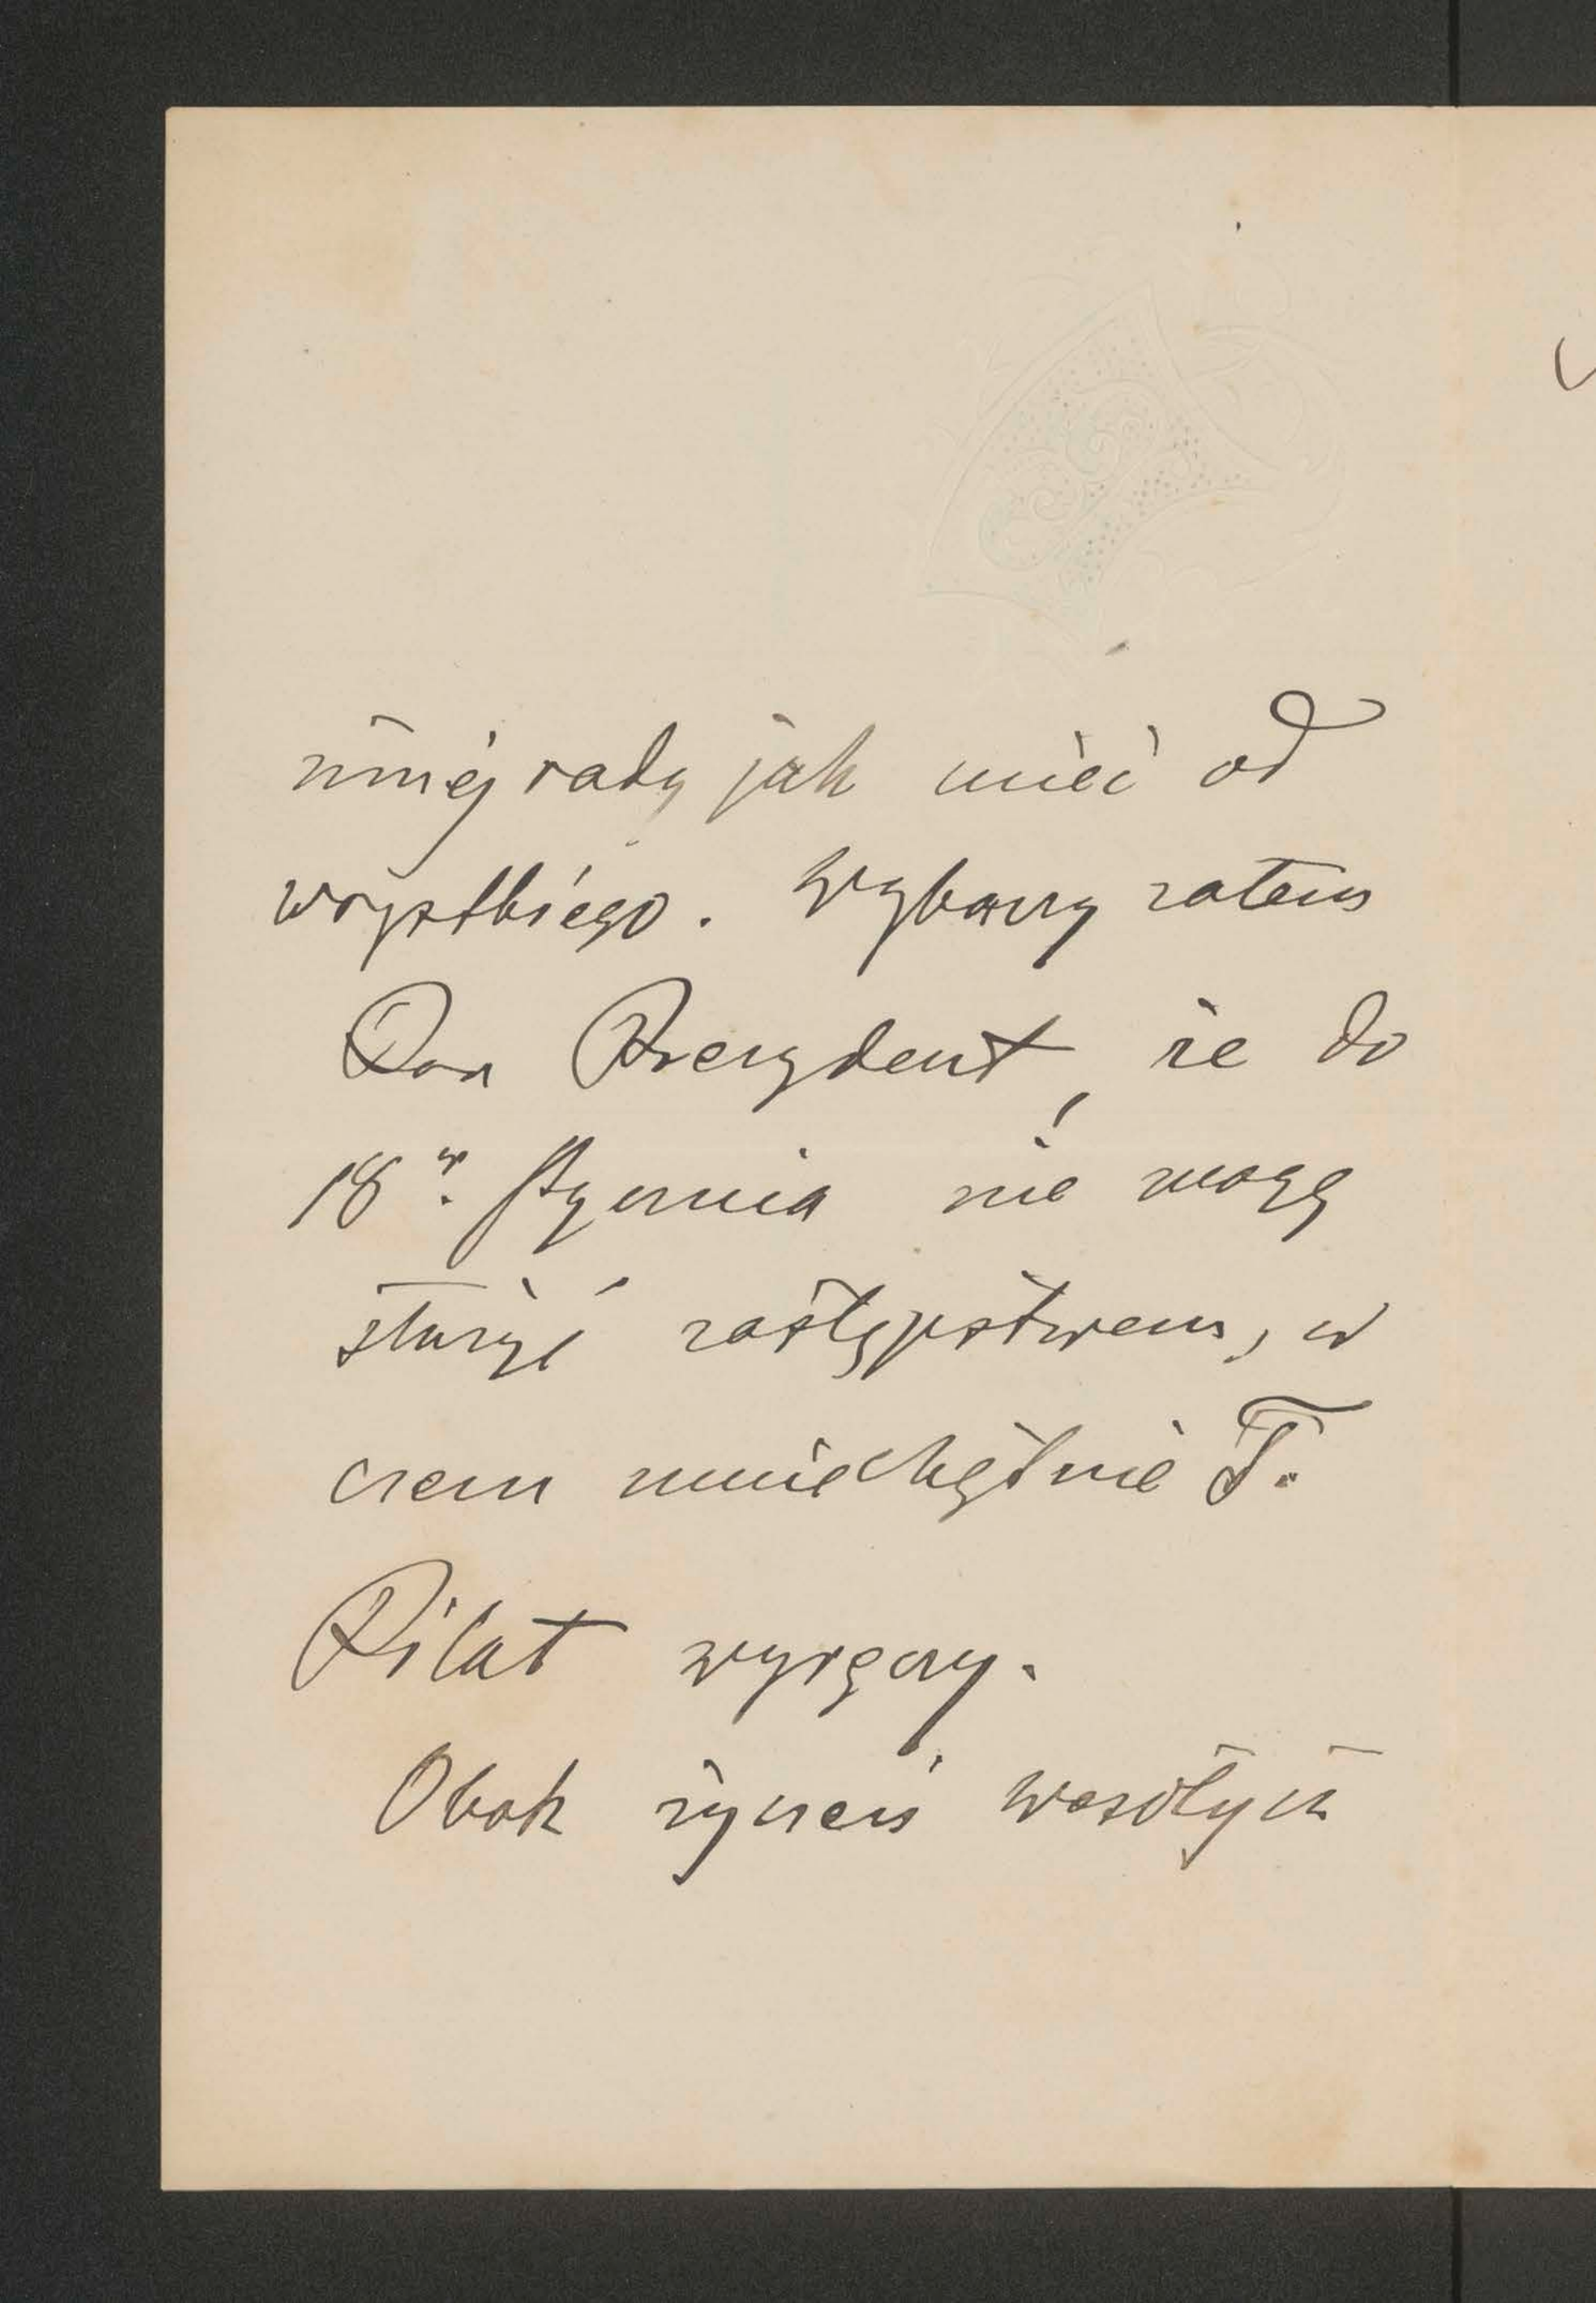 innej rady jak uciec od
wszystkiego. Wybaczy zatem
Pan Prezydent, że do
18go. stycznia nie mogę
służyć zastępstwem, w
czem mnie chętnie T.
Pilat wyręczy.
Obok życzeń wesołych